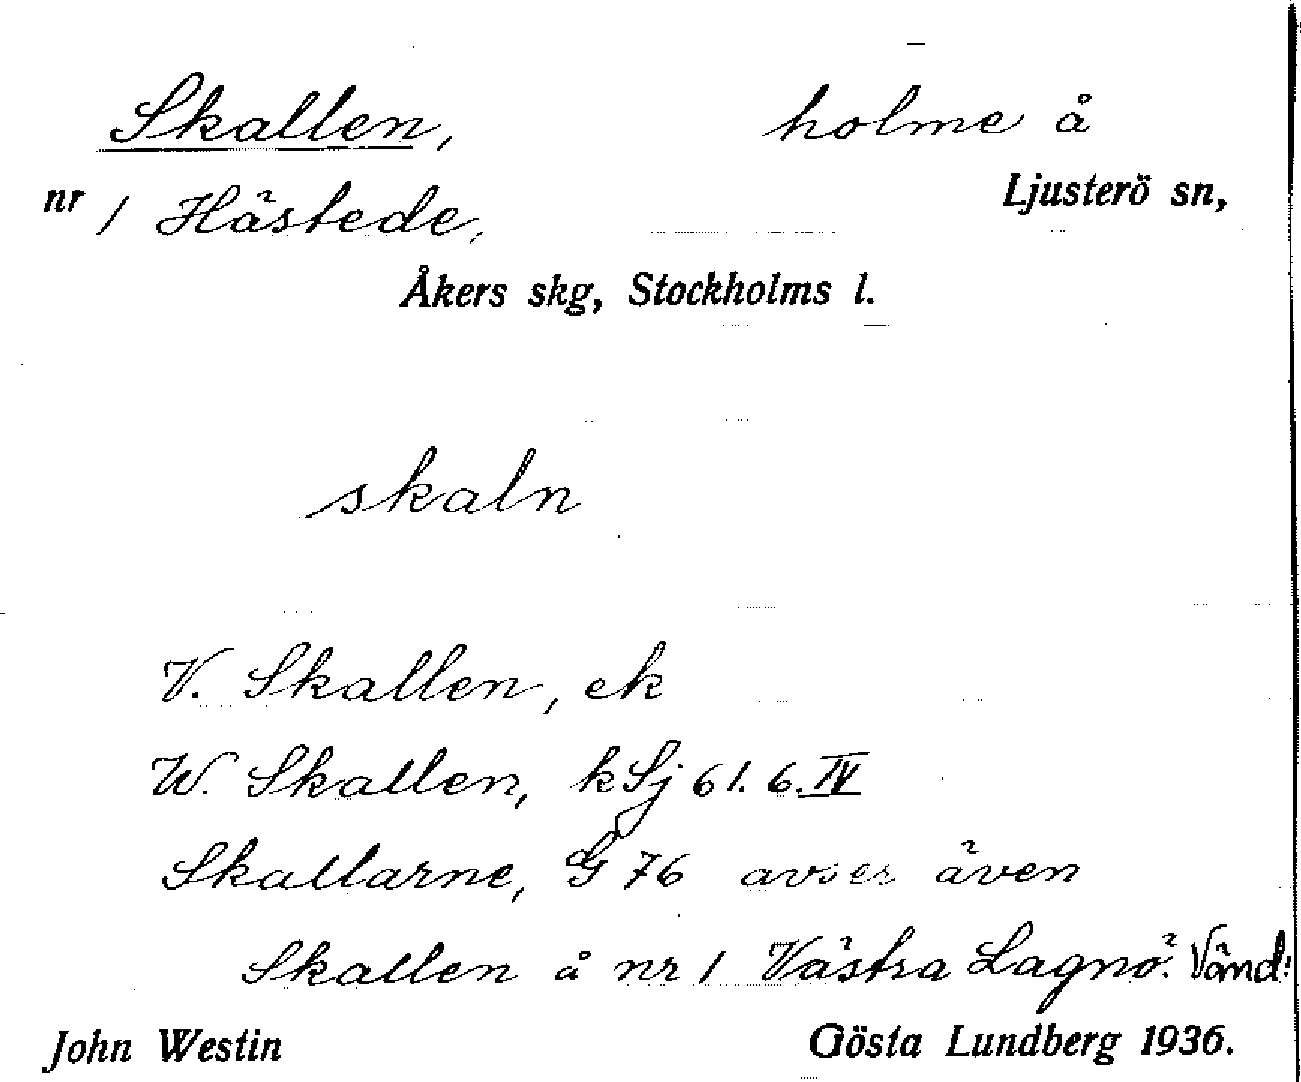 Skallen, holme å
nr 1 Hästede, Ljusterö sn,
Åkers skg, Stockholms l.
skaln
V. Skallen, ek
W. Skallen, k Sj 61. 6. IV
Skallarne, G 76 avser även
Skallen å nr 1 Västra Lagnö. Vänd!
John Westin Gösta Lundberg 1936.